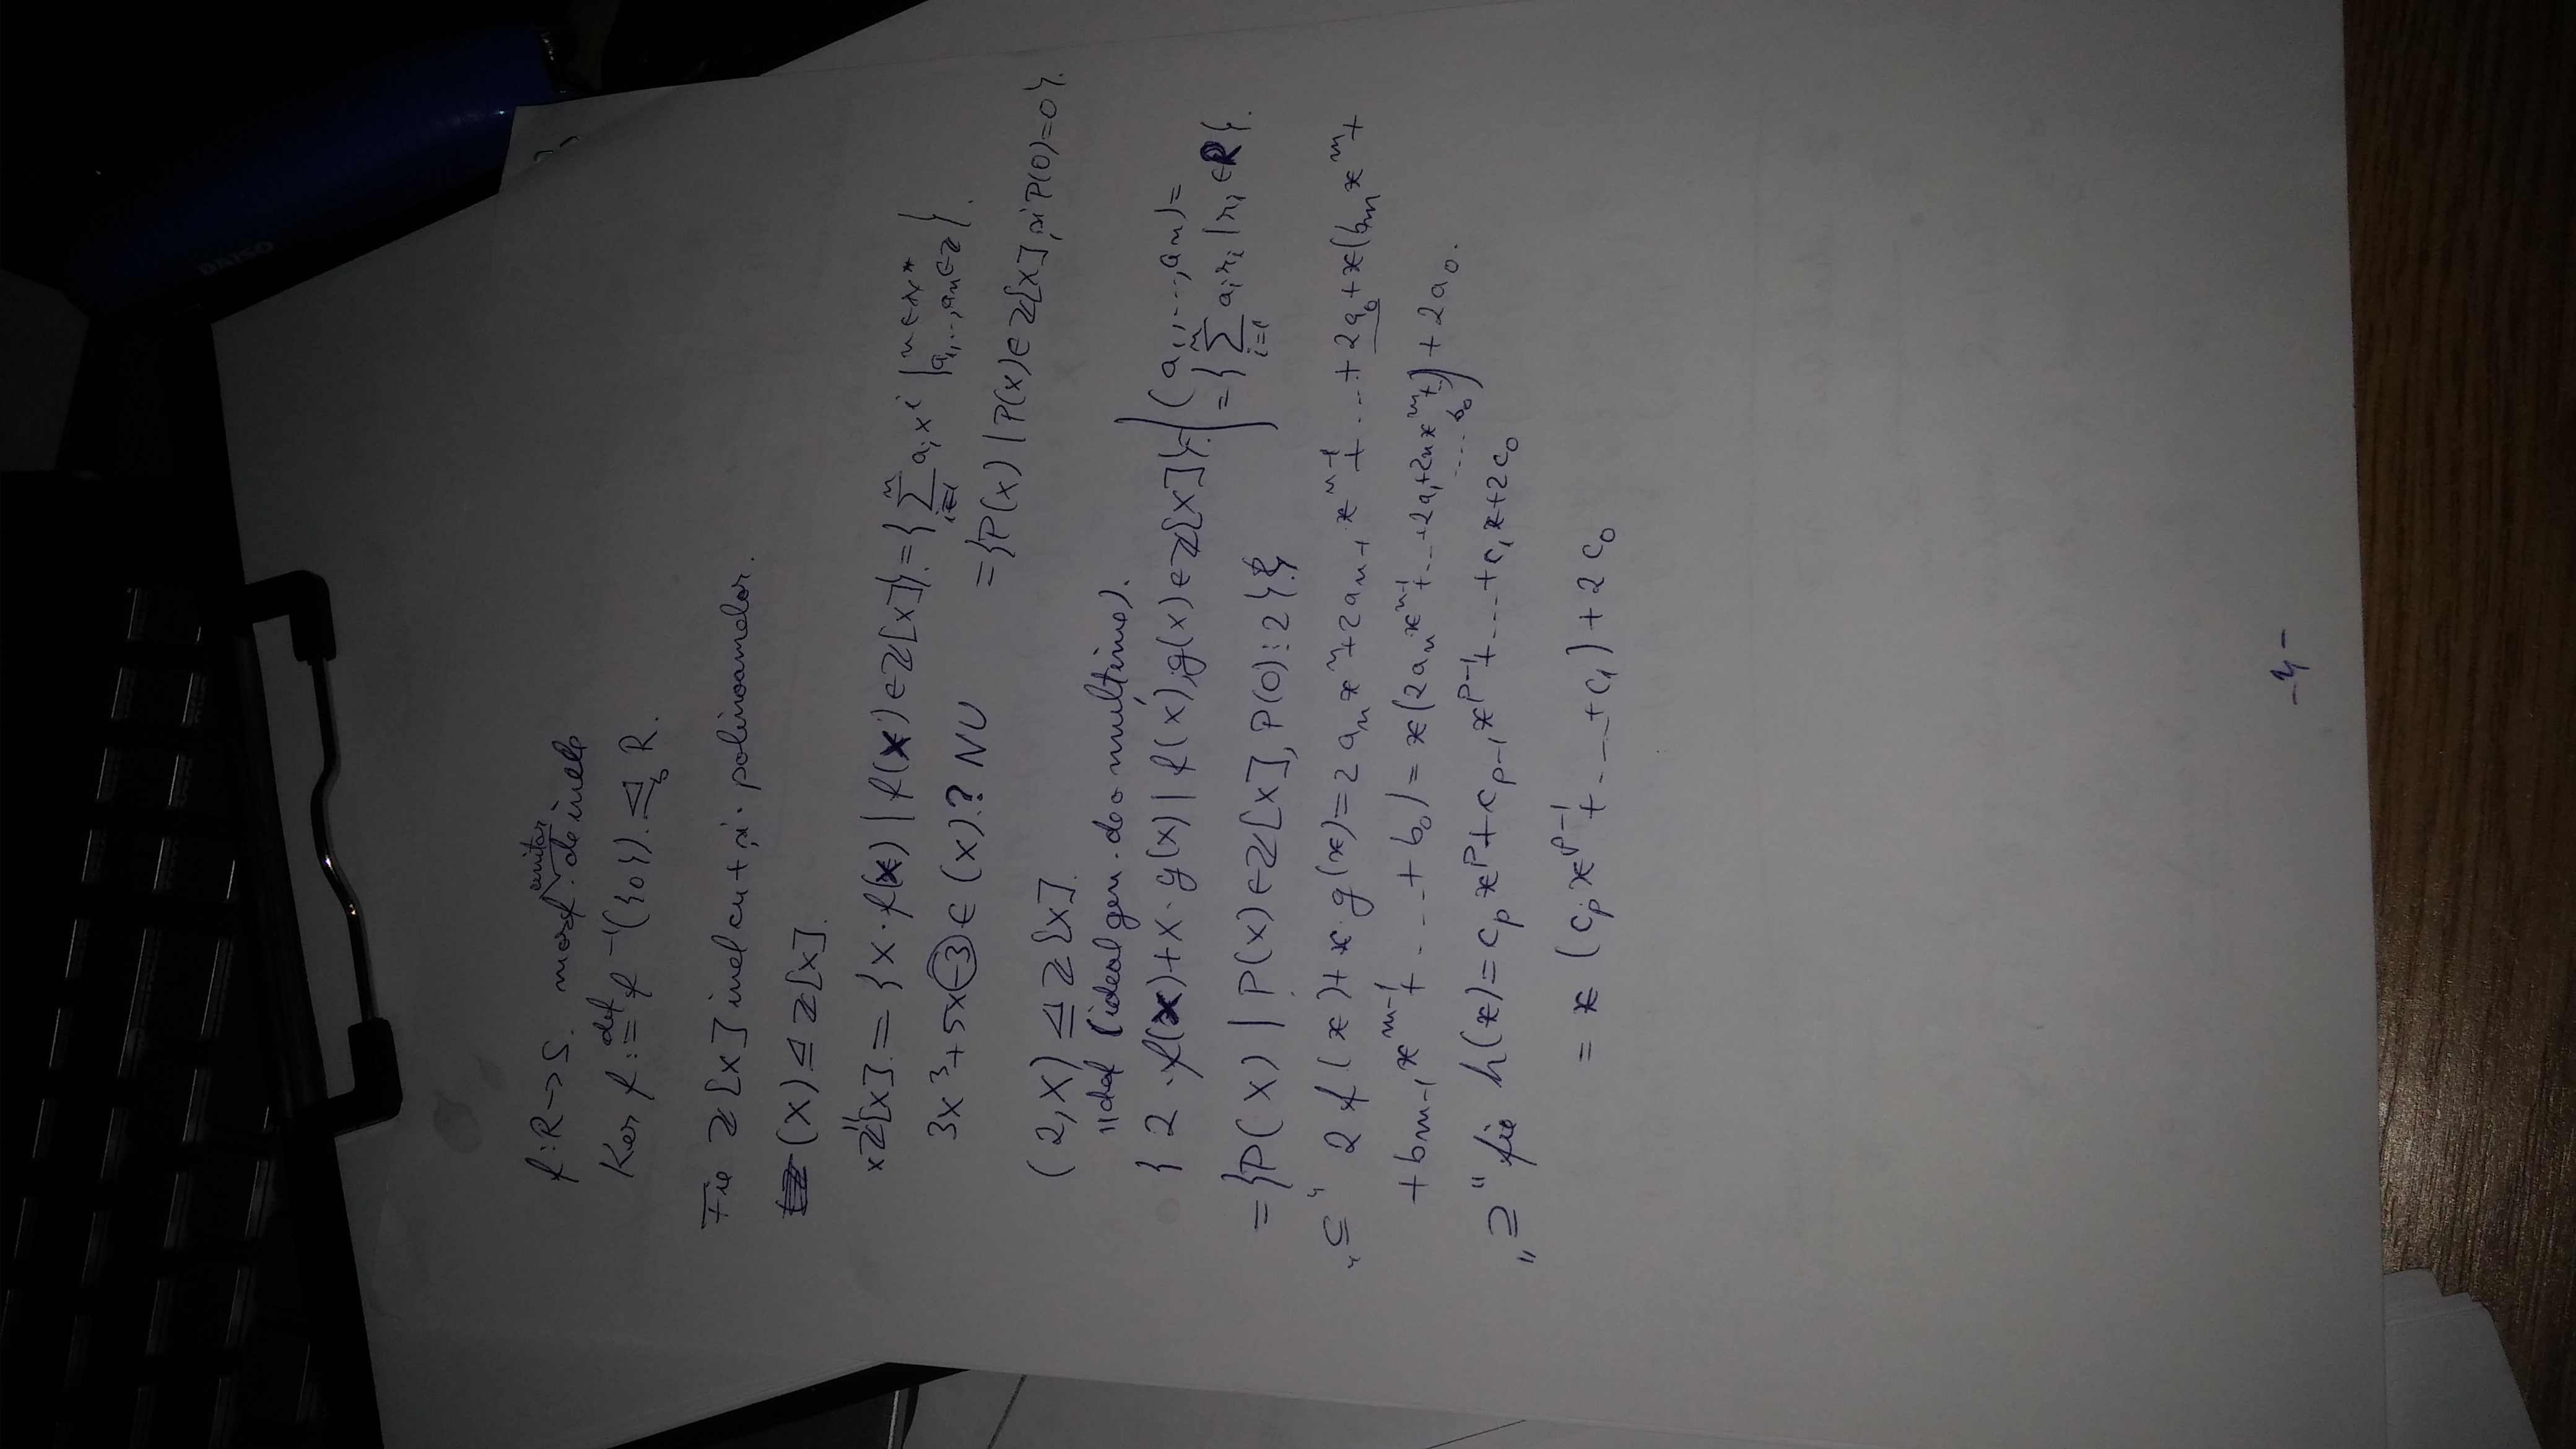 DAISO
f: R → S. morf. unitar de inele
Ker f := def f⁻¹({0}). ⊴ R.
Fie ℤ[X] inel cu + și · polinoamelor.
(X) ⊴ ℤ[X].
"
xℤ[X]. = {X · f(X) | f(X) ∈ ℤ[X]}. = {∑_{i=1}^{n} a_i x^i | n ∈ ℕ* a_1, ..., a_n ∈ ℤ}.
3x³ + 5x - 3 ∈ (x).? NU
= {P(x) | P(x) ∈ ℤ[X], și P(0) = 0}.
(2, X) ⊴ ℤ[X].
" def (ideal gen. de o mulțime).
{2 · f(X) + x · g(x) | f(x), g(x) ∈ ℤ[X]}.
(a_1, ..., a_n) =
= {∑_{i=1}^{n} a_i r_i | r_i ∈ R}.
= {P(X) | P(x) ∈ ℤ[X], P(0) ⋮ 2}.
„⊆" 2 f(x) + x · g(x) = 2a_n x^n + 2a_{n-1} x^{n-1} + ... + 2a_0 + x(b_m x^m +
+ b_{m-1} x^{m-1} + ... + b_0) = x(2a_n x^{n-1} + ... + 2a_1 + 2n x^m + .... b_0) + 2a_0.
„⊇" fie h(x) = c_p x^p + c_{p-1} x^{p-1} + ... + c_1 x + 2c_0
= x (c_p x^{p-1} + ... + c_1) + 2c_0